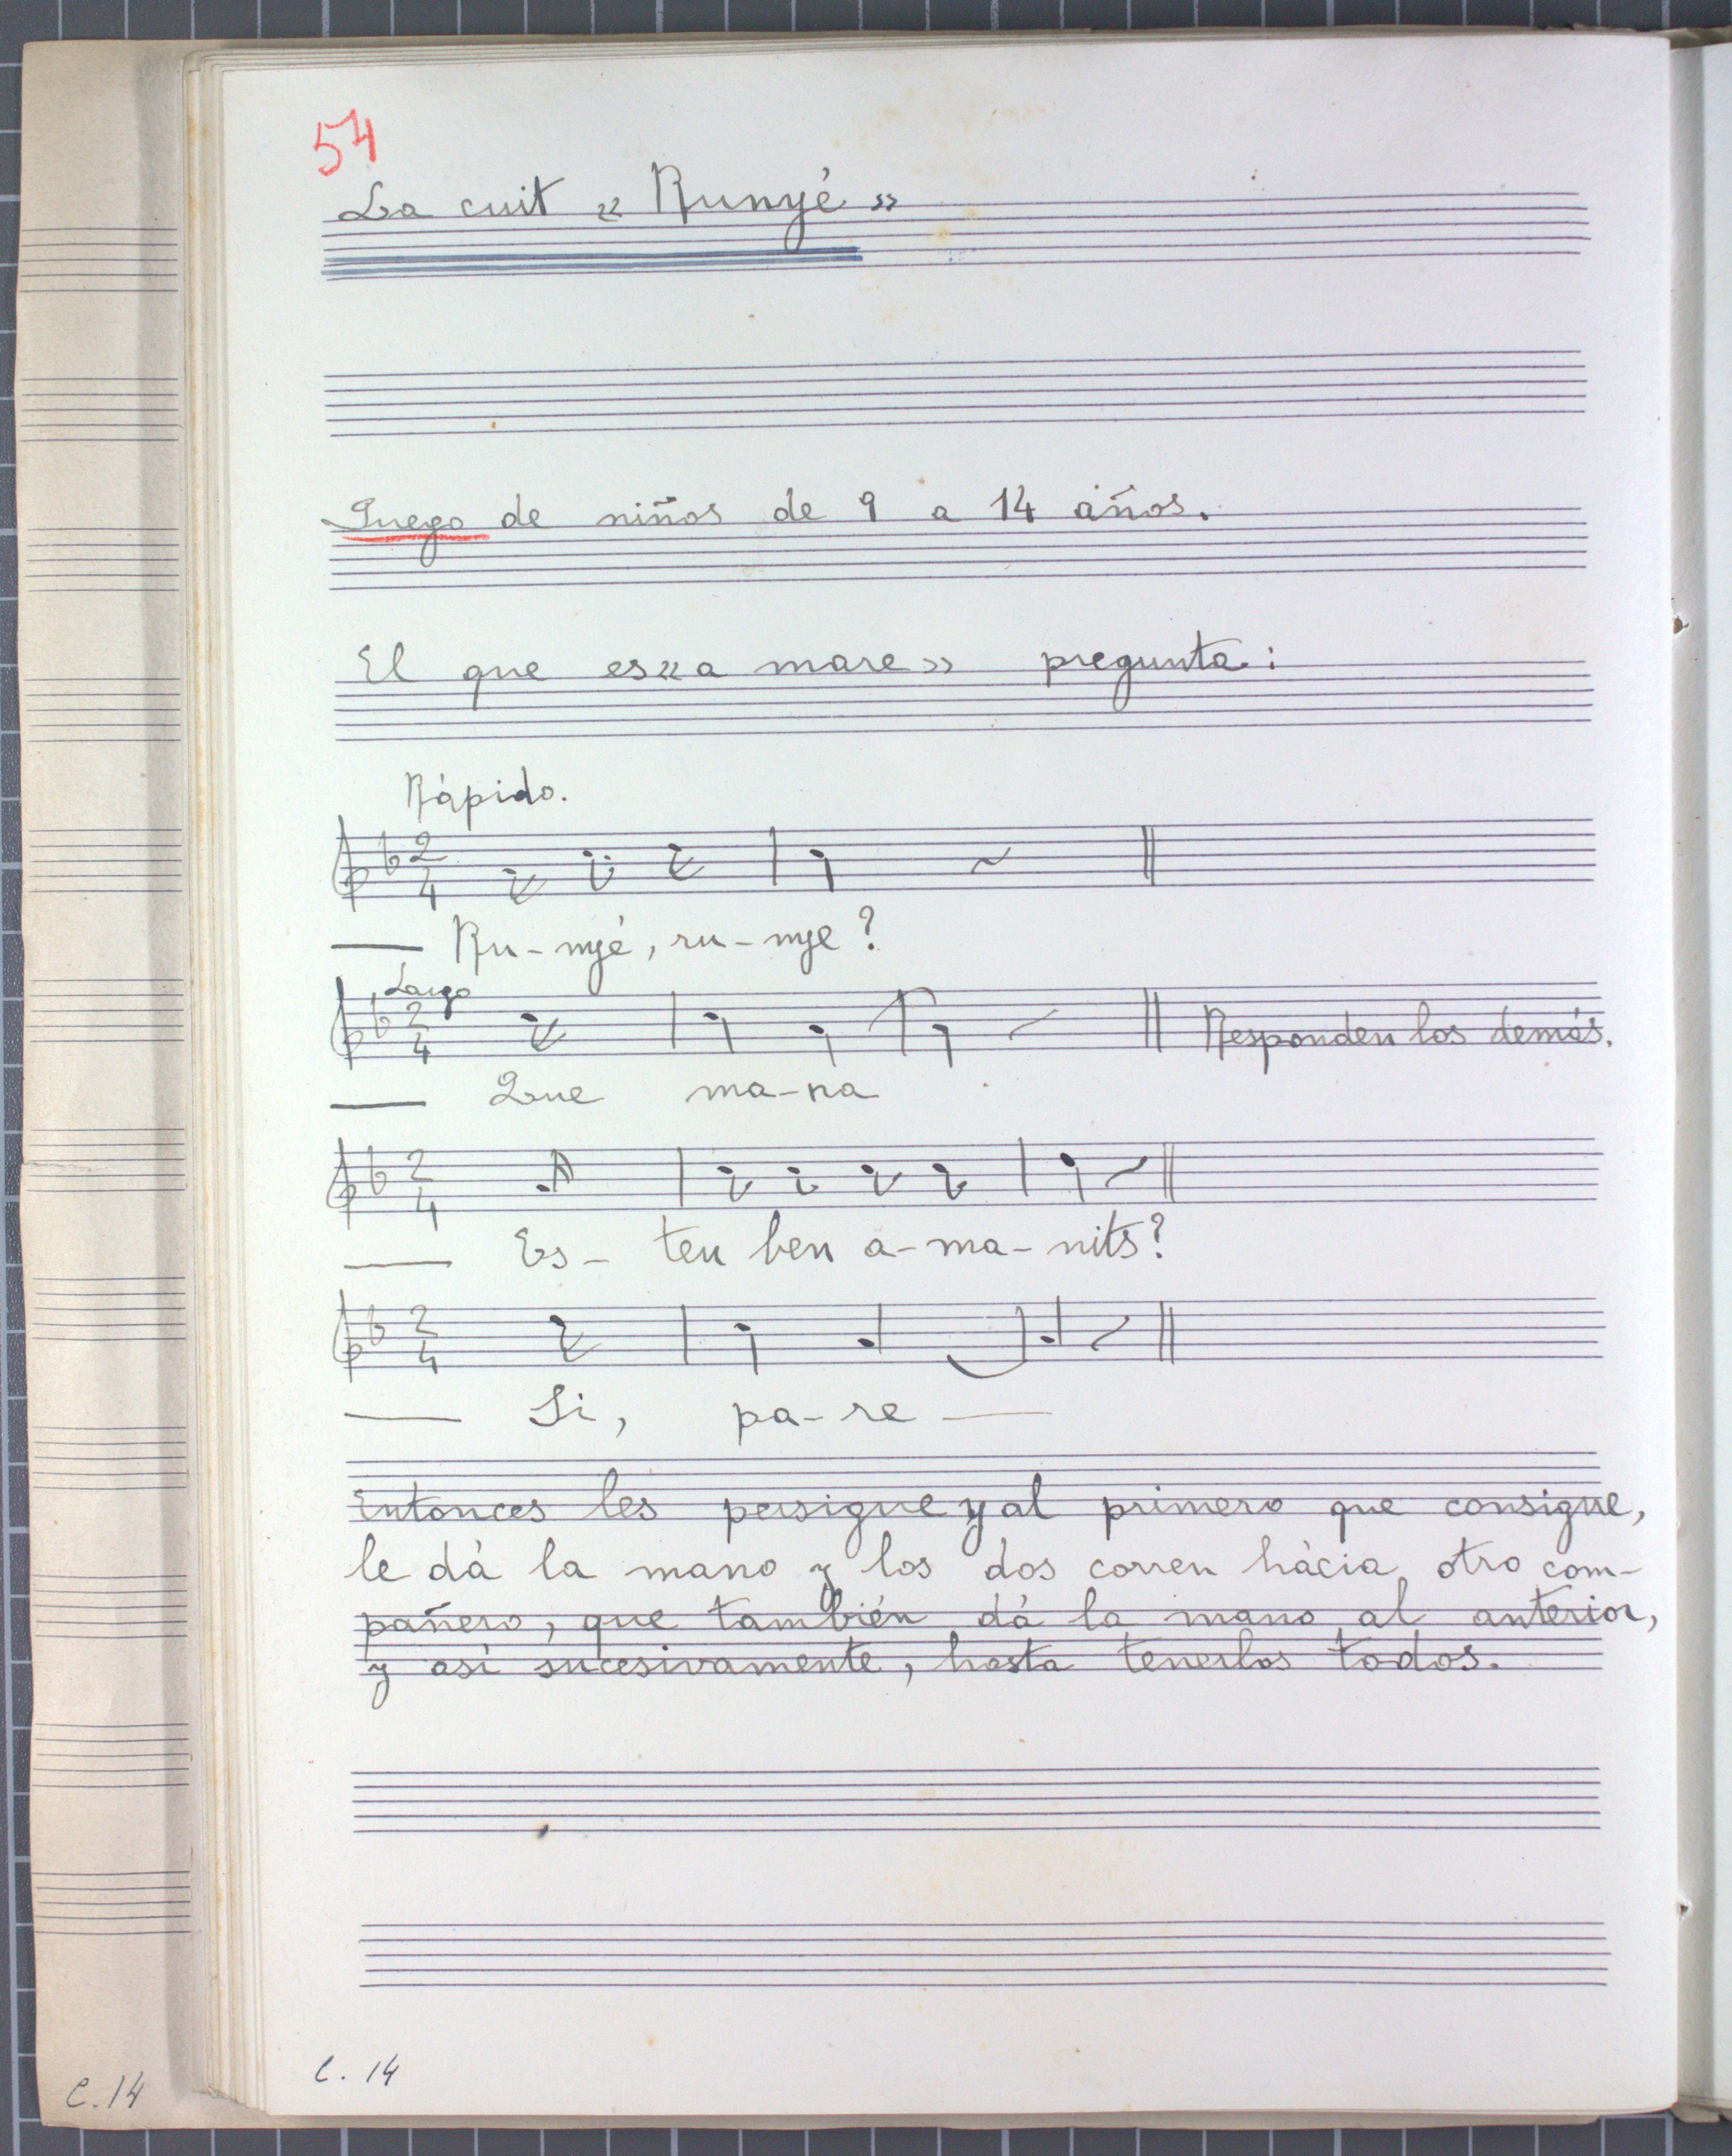 54
La cuit « Runyé »
Juego de niños de 9 a 14 años.
El que es « a mare » pregunta :
Rápido.
2
4
— Ru - nyé, ru - nye ?
Largo
2
4
Responden los demás.
— Que ma - na
2
4
— Es - teu ben a - ma - nits?
2
4
— Si, pa - re —
Entonces les persigue y al primero que consigue,
le dá la mano y los dos corren hácia otro com-
pañero, que también dá la mano al anterior,
y así sucesivamente, hasta tenerlos todos.
C. 14
C. 14